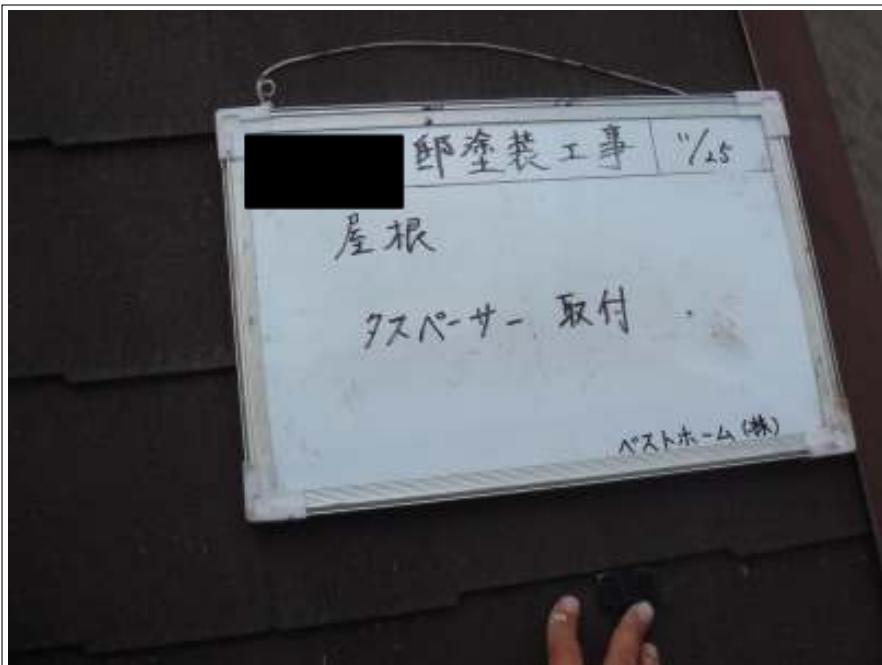 邸塗装工事 11/25
屋根
タスペーサー 取付
ベストホーム(株)